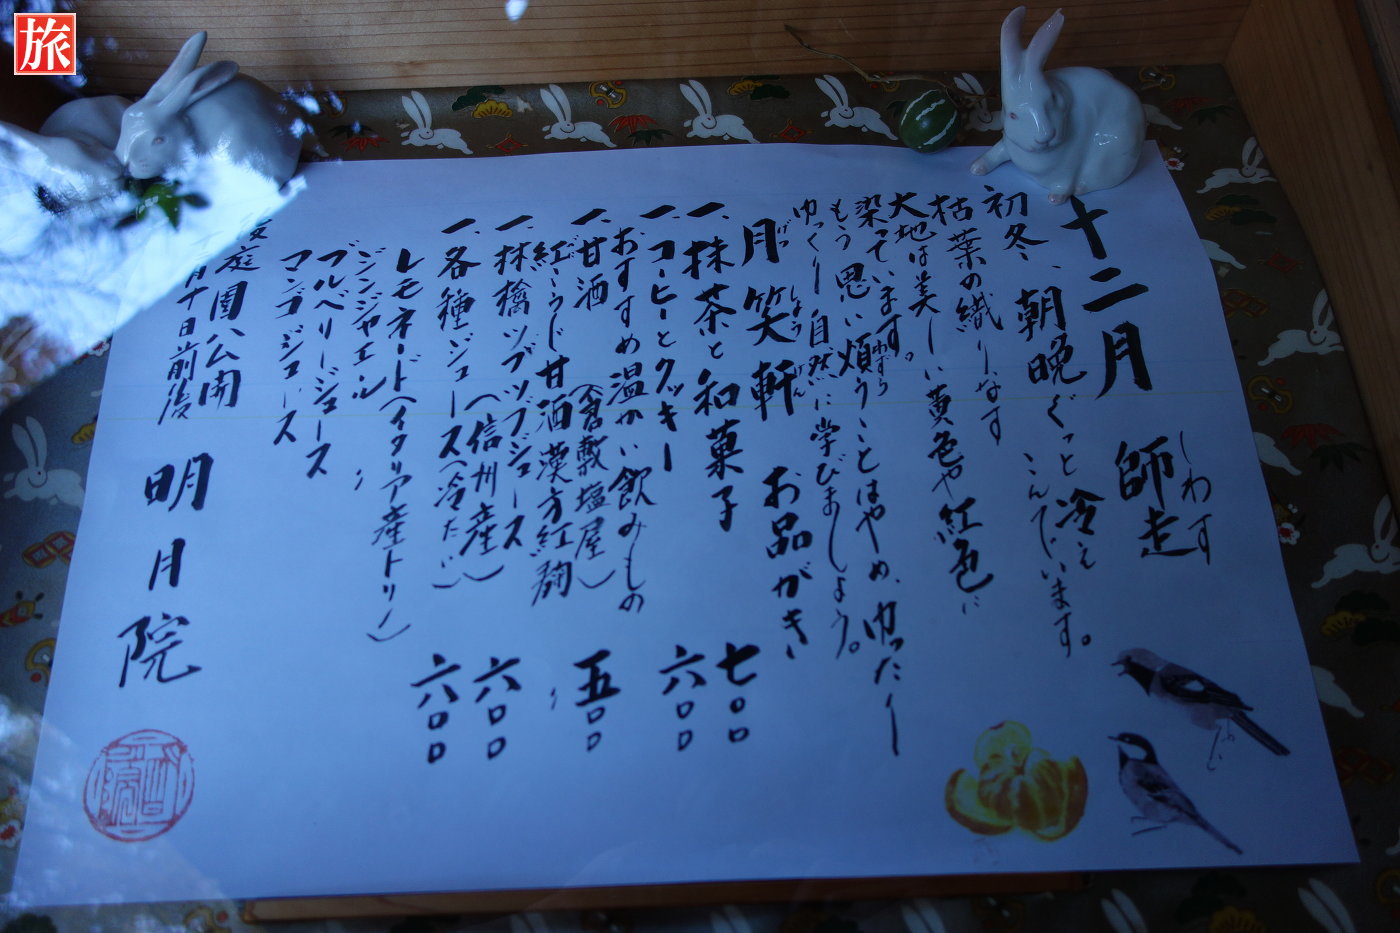 旅
十二月 師走
しわす
初冬、朝晩ぐっと冷え
こんでいます。
枯葉の織りなす
大地は美しい黄色や紅色に
染っています。
もう思い煩うことはやめ、ゆったーし
わずら
ゆっくり自然に学びましょう。
月笑軒 お品がき
げっしょうけん
一、抹茶と和菓子 七〇〇
一、コーヒーとクッキー 六〇〇
おすすめ温かい飲みもの
一、甘酒 (倉敷塩屋) 五〇〇
紅こうじ甘酒 漢方紅麹 〃
一、林檎ツブツブジュース (信州産) 六〇〇
一、各種ジュース(冷たい) 六〇〇
レモネード(イタリア産トリノ)
ジンジャエール 〃
ブルベリージュース
マンゴジュース
庭園公開
月十日前後
明月院